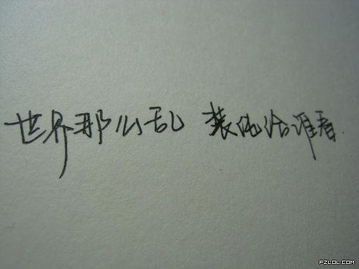 世界那么乱 装纯给谁看
PZLOL.COM